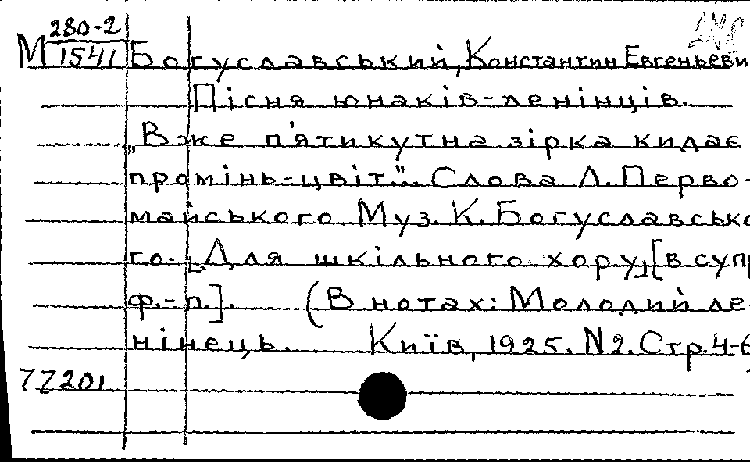 280-2
М 1541 Богуславський, Константин Евгеньеви
Пісня юнаків-ленінців.
„Вже п'ятикутна зірка кидає
промінь-цвіт". Слова Л. Перво-
майського Муз. К. Богуславсько
го. [Для шкільного хору] [в супр
ф.-п.]. (В нотах: Молодий ле-
нінець. Київ, 1925. N2. Стр. 4-6)
77201